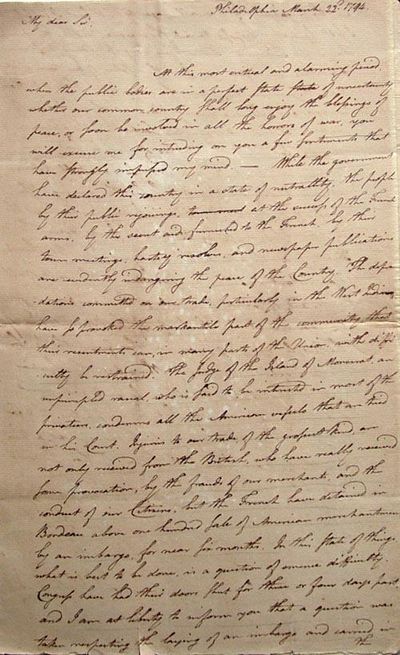 Philadelphia March 22d. 1794.
My dear Sir.
At this most critical and alarming period
when the public bodies are in a perfect State State of uncertainty
whether our common country shall long enjoy the blessings of
peace, or soon be involved in all the horrors of war, you
will excuse me for intruding on you a few sentiments that
have strongly impressed my mind. — While the government
have declared this country in a state of neutrality, the people
by their public rejoicings, at the success of the French
arms, by the and furnished to the French, by their
town meetings, hasty resolves, and newspaper publications
are evidently endangering the peace of the Country. The depre
dations committed on our trade, particularly in the West Indies,
have so provoked the merchantile part of the community, that
their resentments can, in many parts of the Union, with diffi
culty be restrained. The Judge of the Island of Monserat an
unprincipled rascal, who is said to be interested in most of the
privateers, condemns all the American vessels that are tried
in his Court. Injuries to our trade of the grossest kind are
not only received from the British, who have really received
some provocation, by the frauds of our merchants, and the
conduct of our Citizens, but the French have detained in
Bordeaux above one hundred sail of American merchantmen
by an embargo, for near six months. In this State of things
what is best to be done, is a question of immense difficulty.
Congress have had their doors shut for three or four days past,
and I am at liberty to inform you that a question was
taken respecting the laying of an embargo and carried in
the